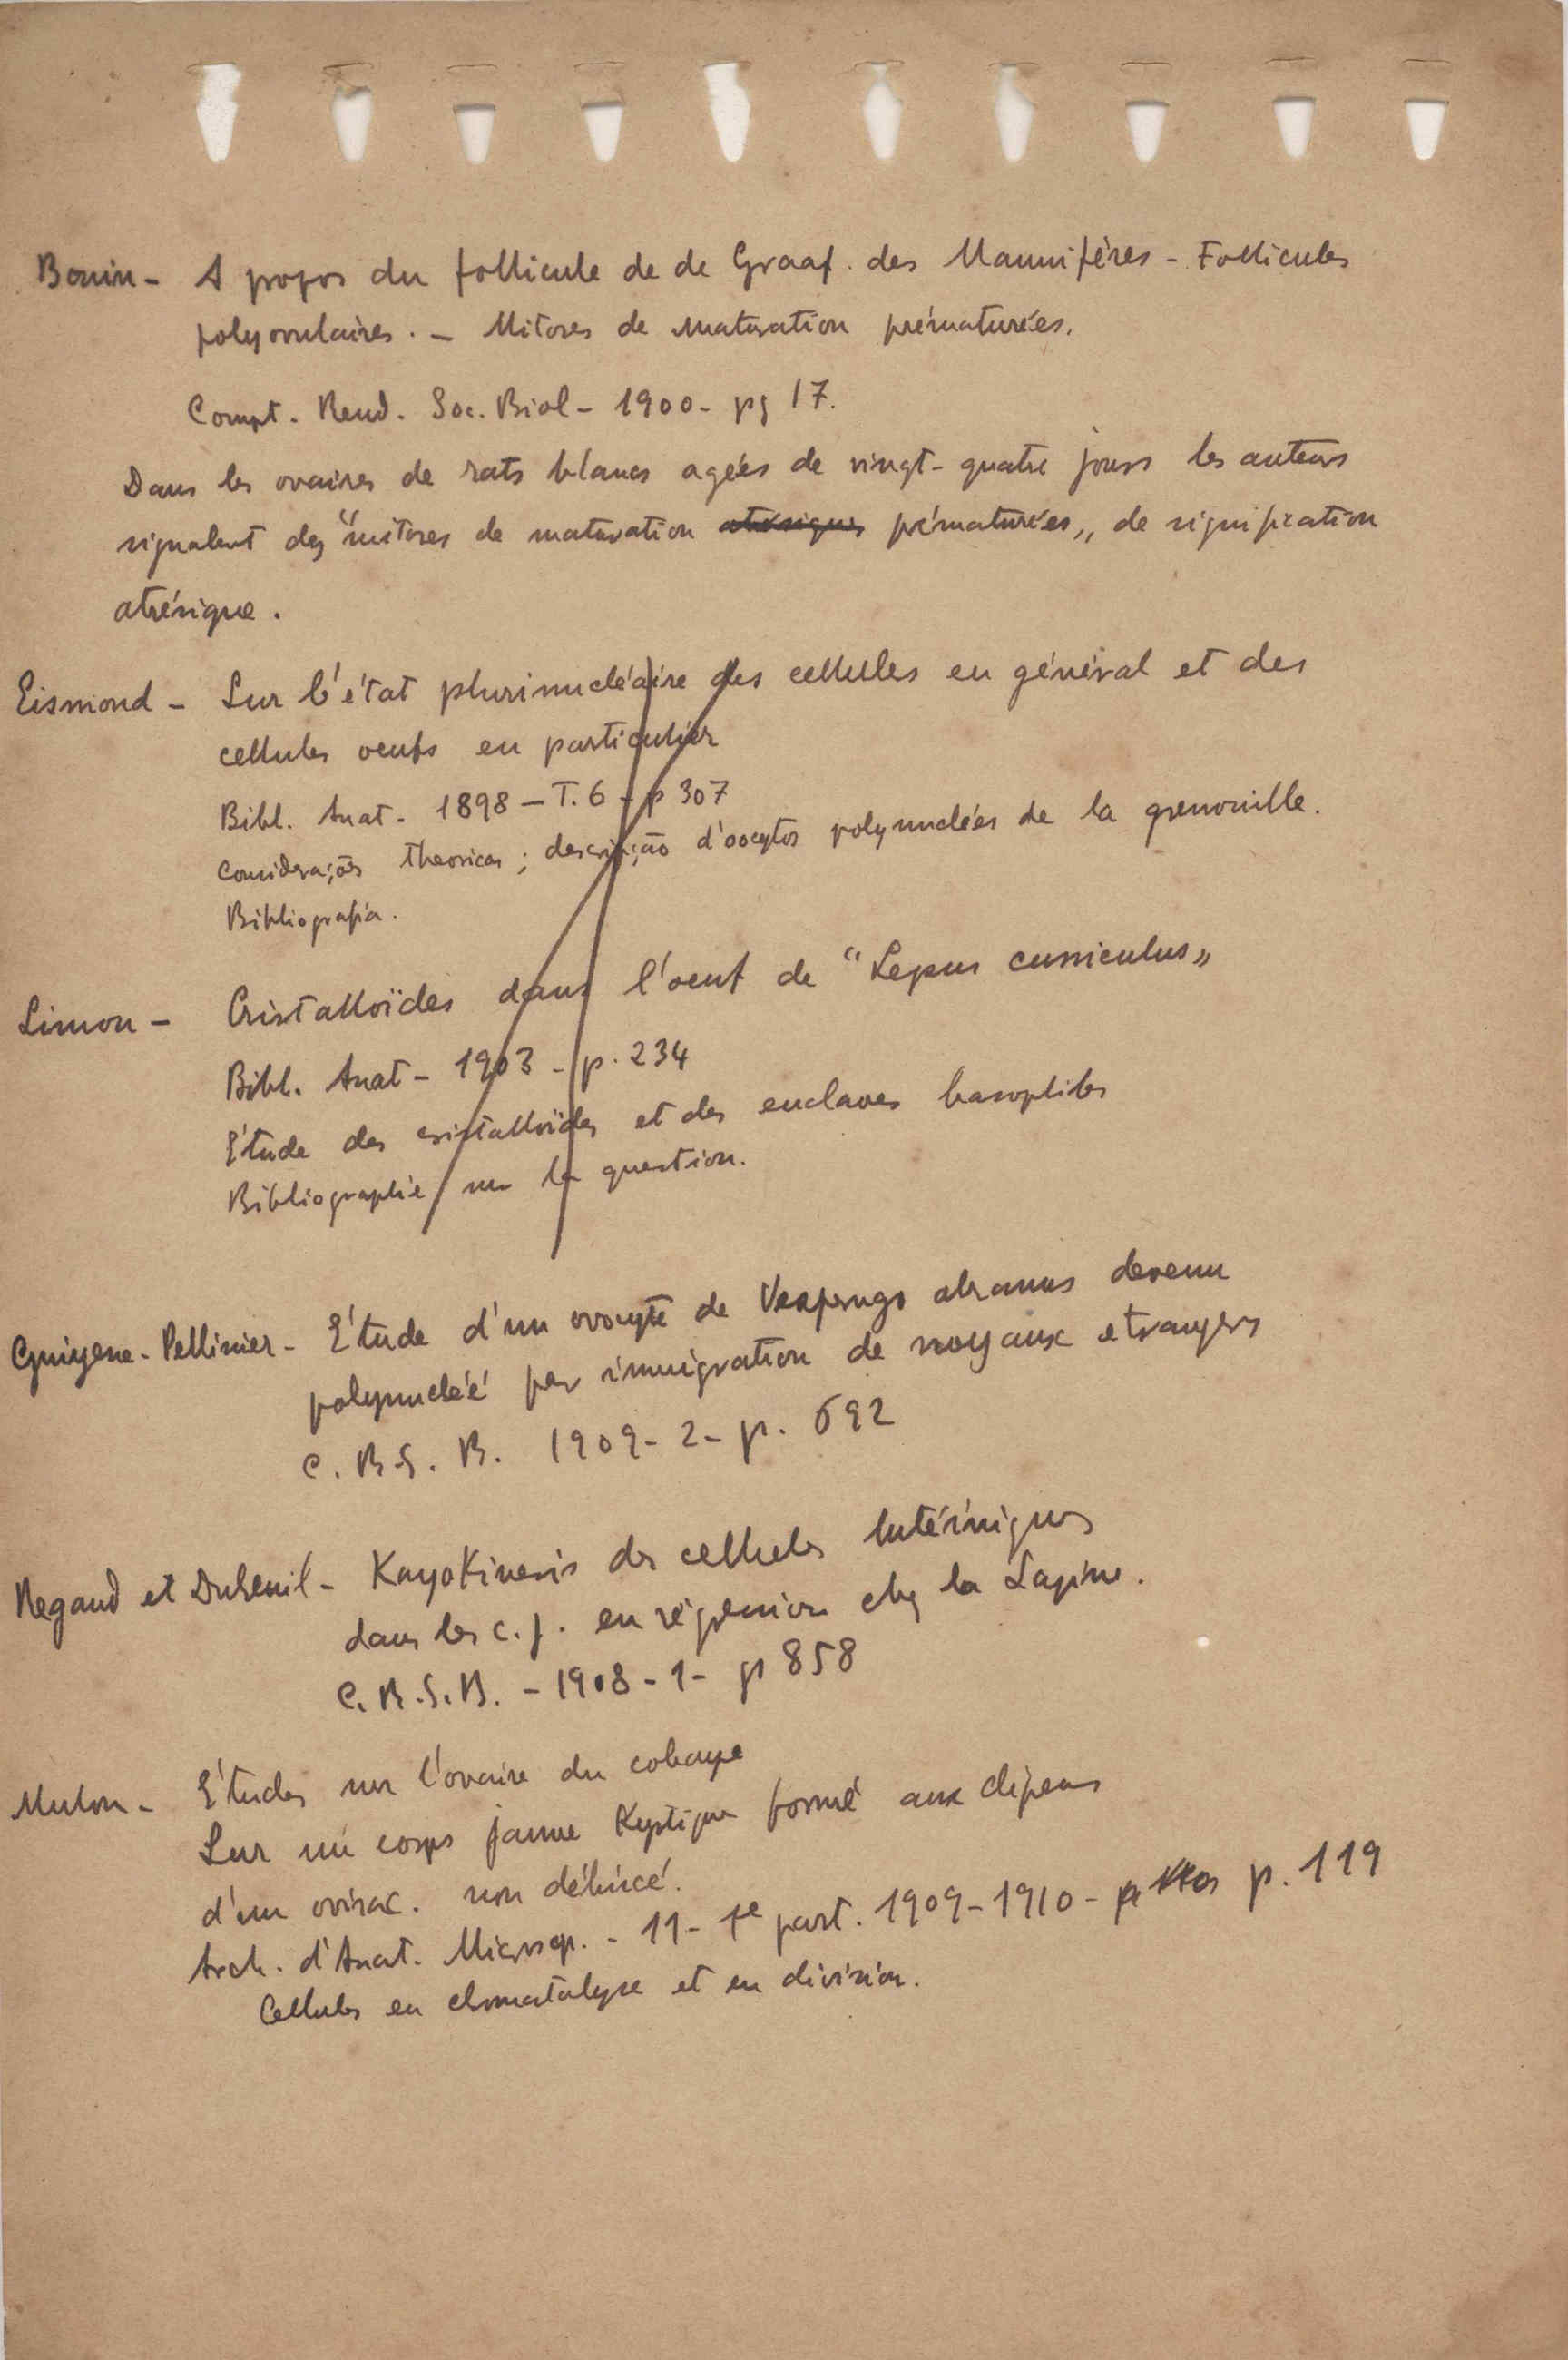 Bouin - A propos du follicule de de Graaf. des Mammifères - Follicules
polyovulaires. - Mitoses de maturation prématurées.
Compt. Rend. Soc. Biol - 1900 - pg 17.
Dans les ovaires de rats blancs agées de vingt-quatre jours les auteurs
signalent des "mitoses de maturation atrésiques prématurées„ de signification
atrésique.
Eismond - Sur l'état plurinucléaire des cellules en général et des
cellules oeufs en particulier
Bibl. Anat. 1898 - T. 6 - p 307
Considerações theoricas ; descripção d'oocytos polynuclées de la grenouille.
Bibliografia.
Limon - Cristalloïdes dans l'oeuf de "Lepus cuniculus„
Bibl. Anat - 1903 - p. 234
Étude des cristalloïdes et des enclaves basophiles
Bibliographie sur la question.
Guiyesse-Pellisier - Étude d'un ovocyte de Vesperugo abramus devenu
polynucléé par immigration de noyaux etrangers
C. R. S. B. 1909 - 2 - p. 692
Regaud et Dubreuil - Karyokinesis des cellules lutéiniques
dans les c. j. en régression chez la Lapine.
C. R. S. B. - 1908 - 1 - p 858
Mulon - Études sur l'ovaire du cobaye
Sur un corps jaune Kystique formé aux dépens
d'un ovisac. non déhiscé.
Arch. d'Anat. Microscp. - 11 - 1e part. 1909-1910 - p. 119
Cellules en chromatolyse et en division.